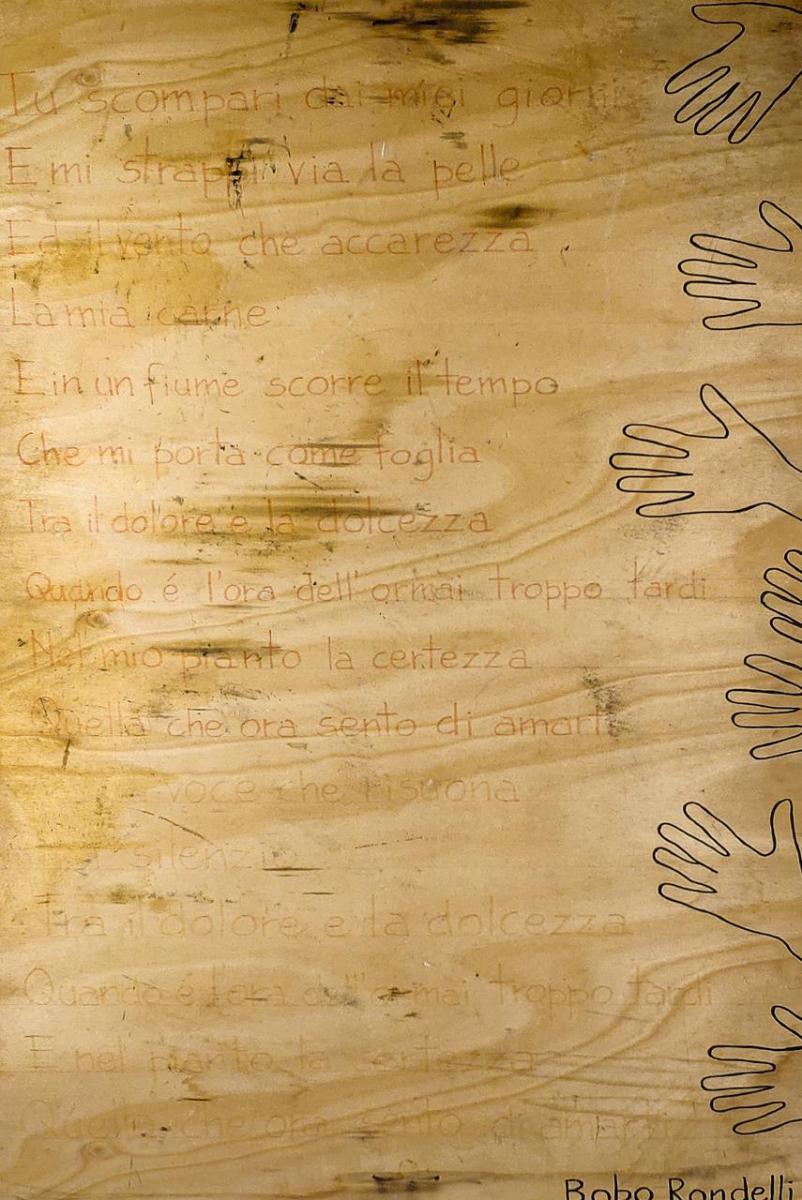 Tu scompari dai miei giorni
E mi strappi via la pelle
Ed il vento che accarezza
La mia carne
E in un fiume scorre il tempo
Che mi porta come foglia
Tra il dolore e la dolcezza
Quando é l'ora dell'ormai troppo tardi
Nel mio pianto la certezza
Quella che ora sento di amarti
voce che risuona
silenzio
Tra il dolore e la dolcezza
Quando é l'ora dell'ormai troppo tardi
E nel pianto la certezza
Quella che ora sento di amarti
Bobo Rondelli